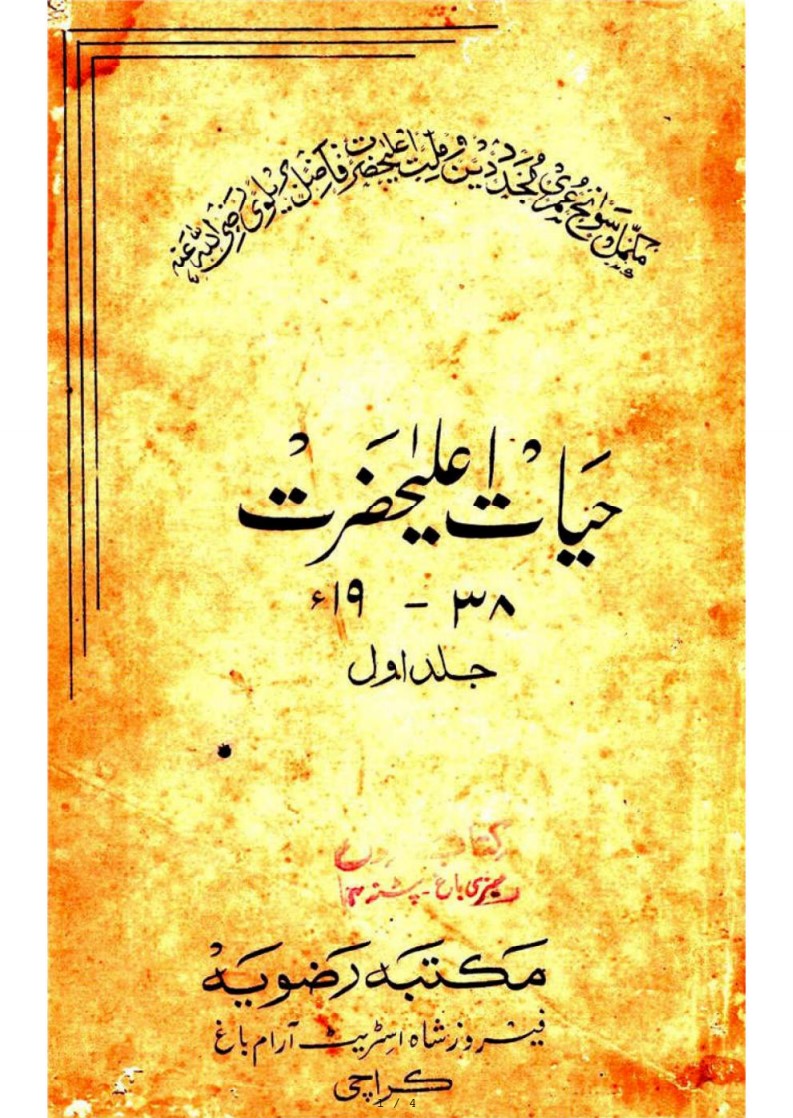 مکمل سوانح عمری مجدد دین و ملت اعلیحضرت فاضل بریلوی رضی اللہ عنہ
حیات اعلیٰحضرت
۳۸ - ۱۹ء
جلد اول
سبزی باغ - پٹنہ ۴
مکتبہ رضویہ
فیروز شاہ اسٹریٹ آرام باغ
کراچی
1 / 4